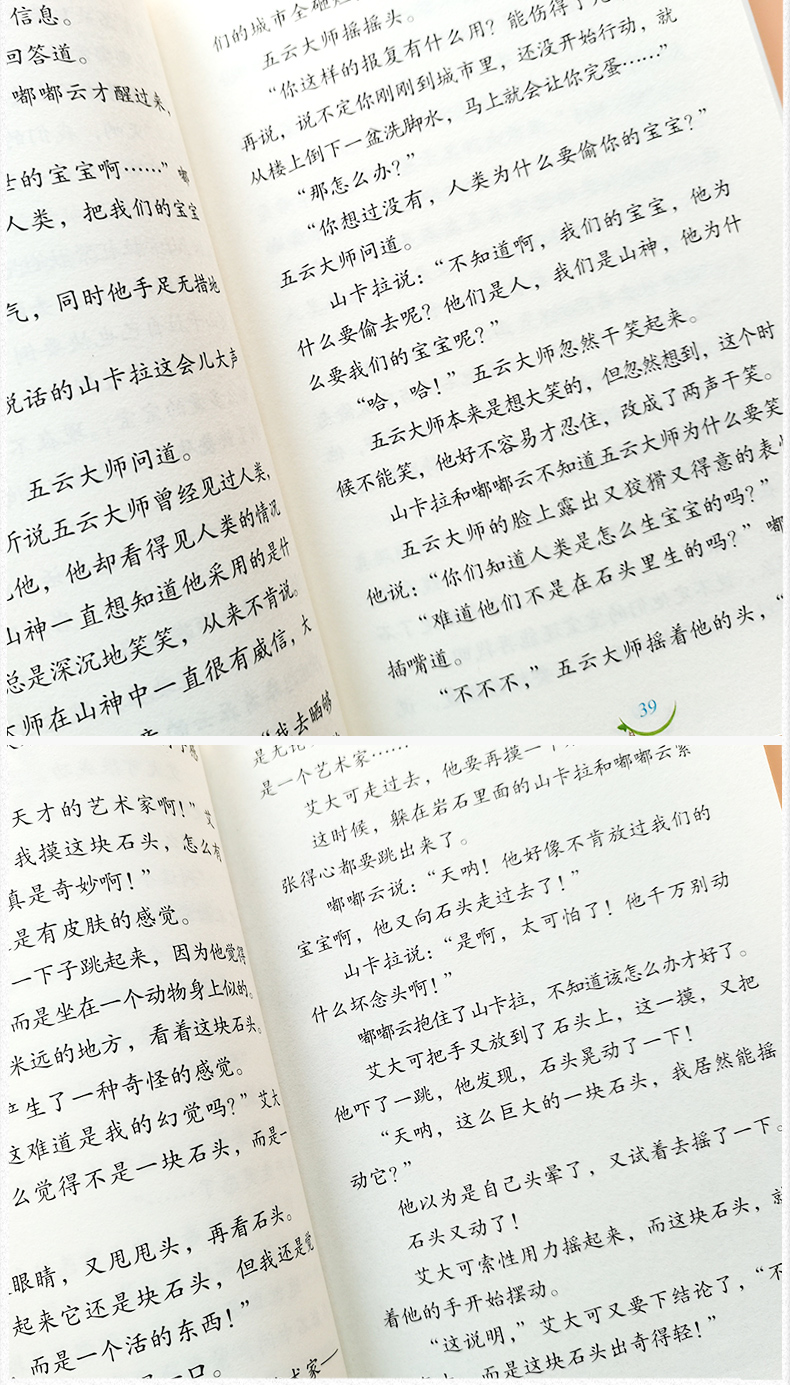 信息。
回答道。
嘟嘟云才醒过来，
的宝宝啊……”嘟
人类，把我们的宝宝
气，同时他手足无措地
说话的山卡拉这会儿大声
五云大师问道。
听说五云大师曾经见过人类，
他，他却看得见人类的情况
山神一直想知道他采用的是什
总是深沉地笑笑，从来不肯说。
师在山神中一直很有威信，大
“我去晒够
们的城市全砸
五云大师摇摇头。
“你这样的报复有什么用？能伤得了
再说，说不定你刚刚到城市里，还没开始行动，就
从楼上倒下一盆洗脚水，马上就会让你完蛋……”
“那怎么办？”
“你想过没有，人类为什么要偷你的宝宝？”
五云大师问道。
山卡拉说：“不知道啊，我们的宝宝，他为
什么要偷去呢？他们是人，我们是山神，他为什
么要我们的宝宝呢？”
“哈，哈！”五云大师忽然干笑起来。
五云大师本来是想大笑的，但忽然想到，这个时
候不能笑，他好不容易才忍住，改成了两声干笑。
山卡拉和嘟嘟云不知道五云大师为什么要笑
五云大师的脸上露出又狡猾又得意的表
他说：“你们知道人类是怎么生宝宝的吗？”
“难道他们不是在石头里生的吗？”嘟
插嘴道。
“不不不，”五云大师摇着他的头，“
39
天才的艺术家啊！”艾
我摸这块石头，怎么有
真是奇妙啊！”
是有皮肤的感觉。
一下子跳起来，因为他觉得
而是坐在一个动物身上似的。
米远的地方，看着这块石头。
产生了一种奇怪的感觉。
这难道是我的幻觉吗？”艾大
么觉得不是一块石头，而是一
眼睛，又甩甩头，再看石头。
起来它还是块石头，但我还是觉
而是一个活的东西！”
术家—
是无论
是一个艺术家……
艾大可走过去，他要再摸一下
这时候，躲在岩石里面的山卡拉和嘟嘟云紧
张得心都要跳出来了。
嘟嘟云说：“天呐！他好像不肯放过我们的
宝宝啊，他又向石头走过去了！”
山卡拉说：“是啊，太可怕了！他千万别动
什么坏念头啊！”
嘟嘟云抱住了山卡拉，不知道该怎么办才好了。
艾大可把手又放到了石头上，这一摸，又把
他吓了一跳，他发现，石头晃动了一下！
“天呐，这么巨大的一块石头，我居然能摇
动它？”
他以为是自己头晕了，又试着去摇了一下。
石头又动了！
艾大可索性用力摇起来，而这块石头，就
着他的手开始摆动。
“这说明，”艾大可又要下结论了，“不
而是这块石头出奇得轻！”